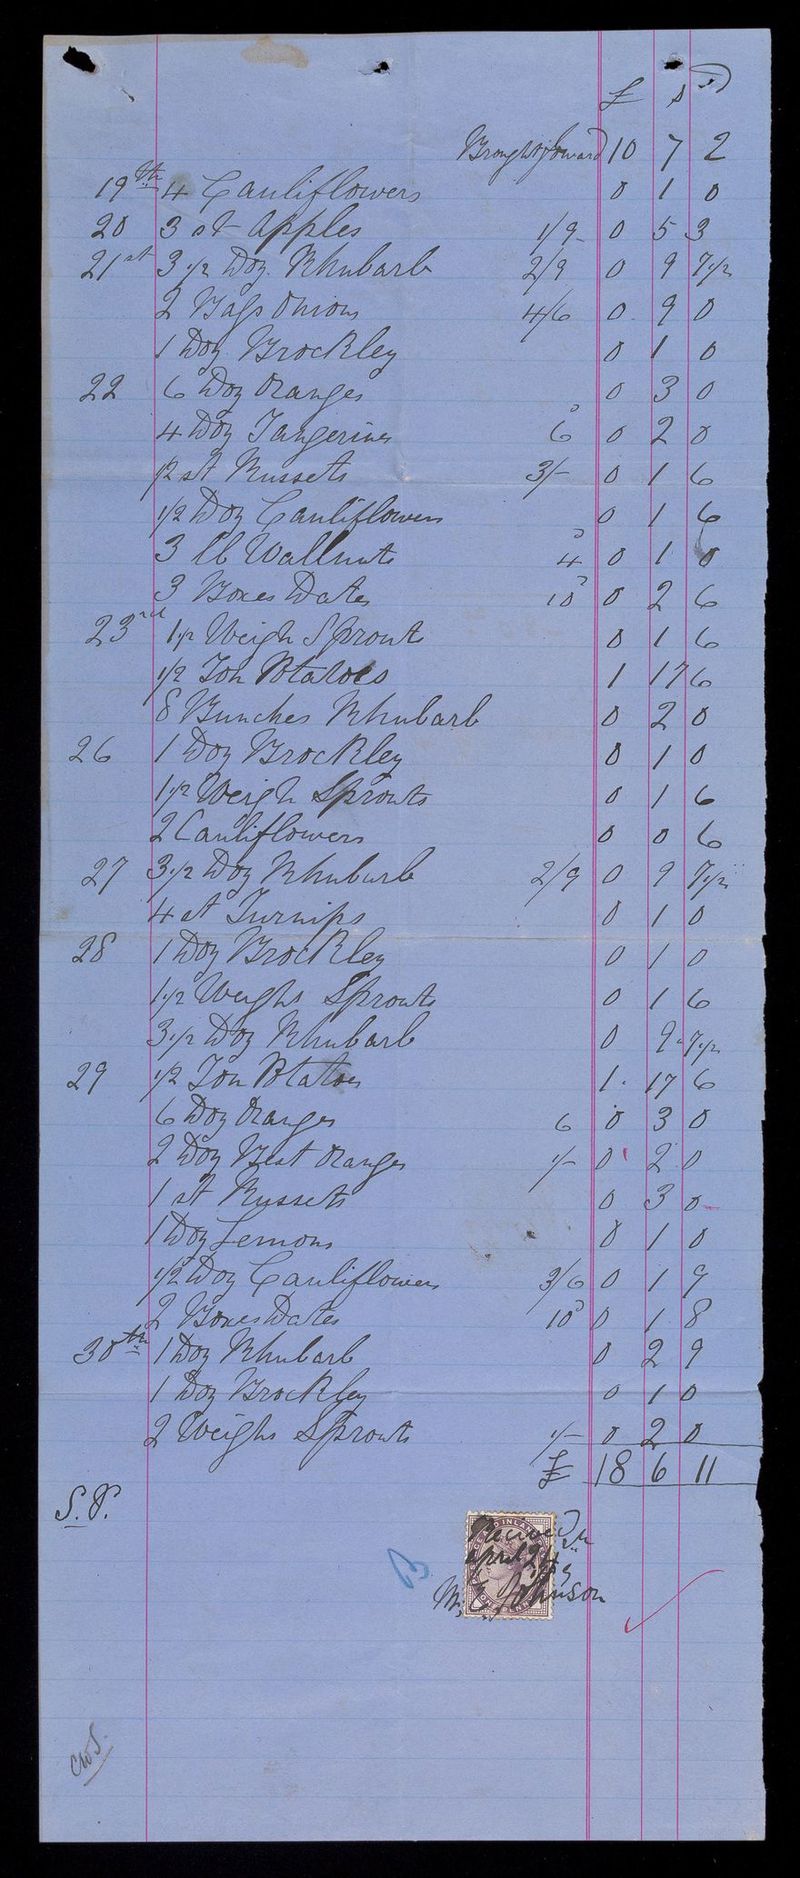 £ s D
Brought foward 10 7 2
19th 4 Cauliflowers 0 1 0
20 3 st Apples 1/9 0 5 3
21st 3 1/2 Doz. Rhubarb 2/9 0 9 7 1/2
2 Bags Onions 4/6 0 9 0
1 Doz Brockley 0 1 0
22 6 Doz Oranges 0 3 0
4 Doz Tangerines 6D 0 2 0
1/2 st Russets 3/- 0 1 6
1/2 Doz Cauliflowers 0 1 6
3 lb Wallnuts 4D 0 1 0
3 Boxes Dates 10D 0 2 6
23rd 1 1/2 Weigh Sprouts 0 1 6
1/2 Ton Potatoes 1 17 6
8 Bunches Rhubarb 0 2 0
26 1 Doz Brockley 0 1 0
1 1/2 Weigh Sprouts 0 1 6
2 Cauliflowers 0 0 6
27 3 1/2 Doz Rhubarb 2/9 0 9 7 1/2
4 st Turnips 0 1 0
28 1 Doz Brockley 0 1 0
1 1/2 Weighs Sprouts 0 1 6
3 1/2 Doz Rhubarb 0 9 7 1/2
29 1/2 Ton Potatoes 1 17 6
6 Doz Oranges 6 0 3 0
2 Doz Best Oranges 1/- 0 2 0
1 st Russets 0 3 0
1 Doz Lemons 0 1 0
1/2 Doz Cauliflowers 3/6 0 1 9
2 Boxes Dates 10D 0 1 8
30th 1 Doz Rhubarb 0 2 9
1 Doz Brockley 0 1 0
2 Weighs Sprouts 1/- 0 2 0
£ 18 6 11
S.P.
INLAN
Received
April 24th
B
Johnson
ONE PENNY
CWS.